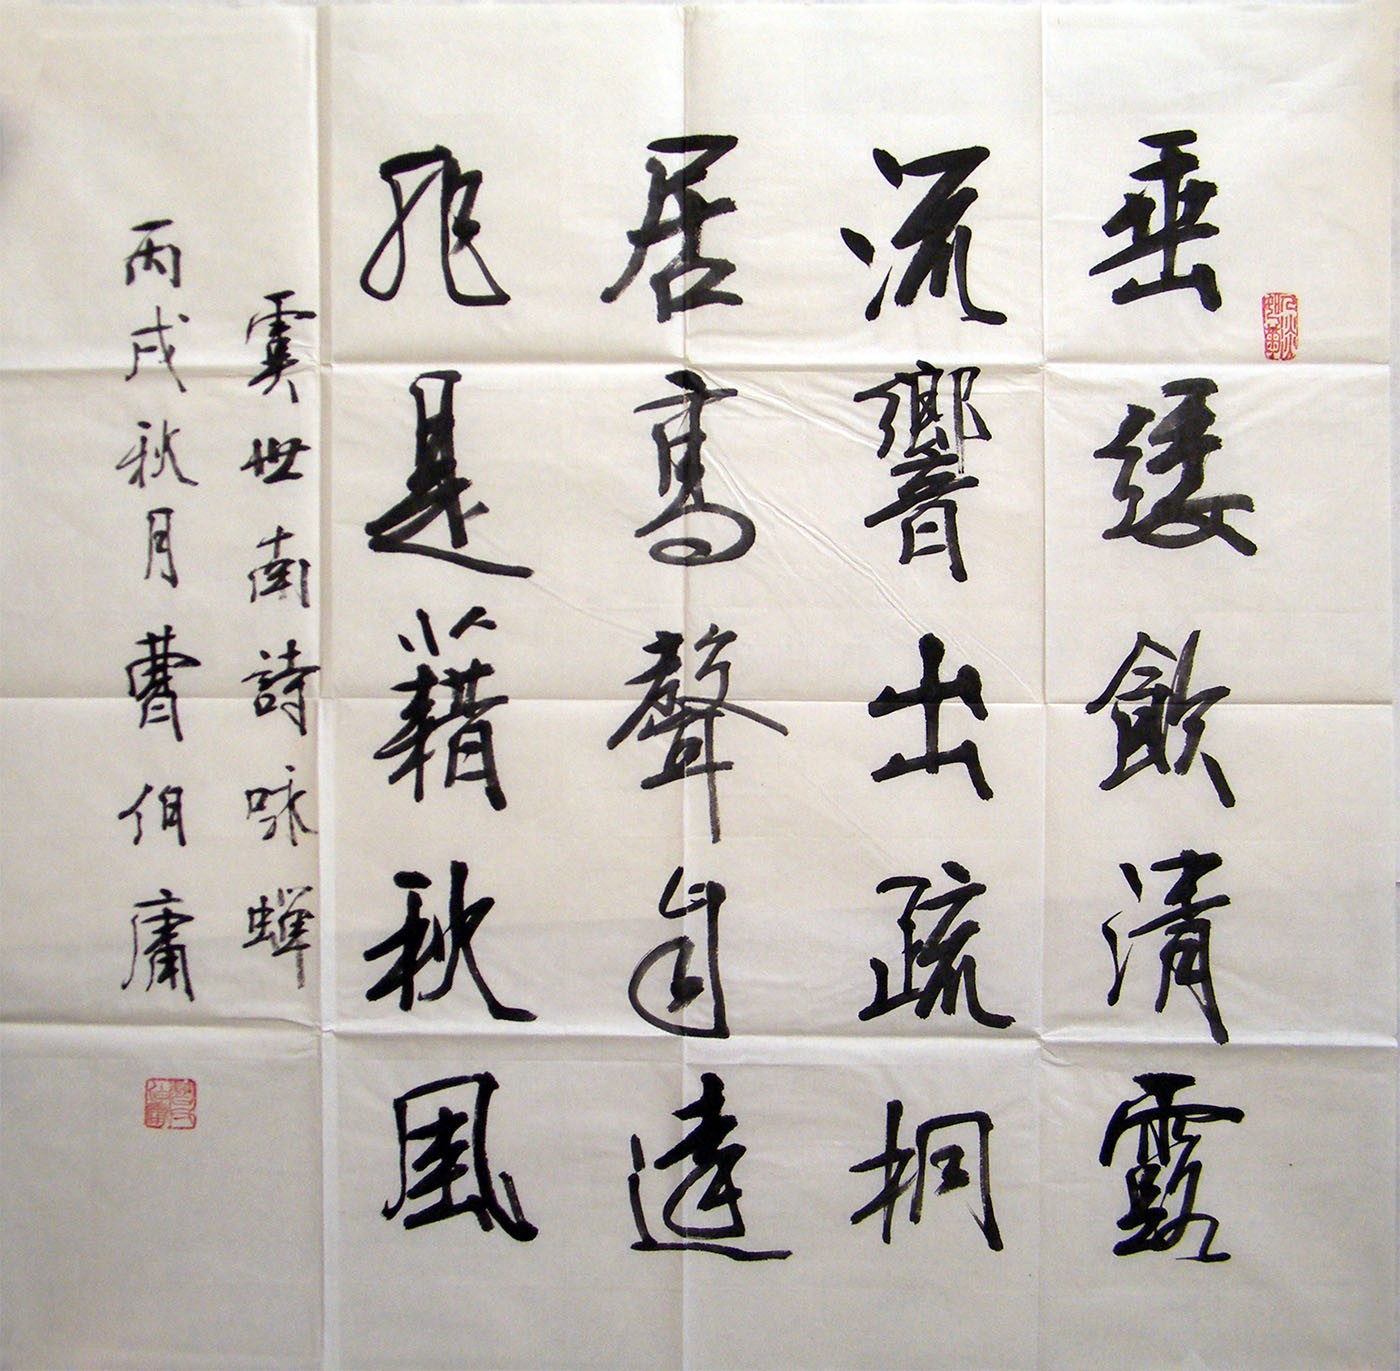 垂緌飲清露
流響出疏桐
居高聲自遠
非是籍秋風
虞世南詩咏蝉
丙戌秋月曹伯庸